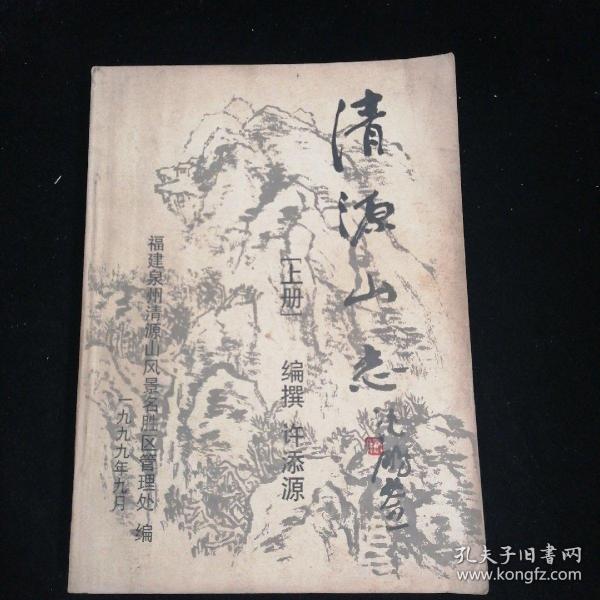 清源山志
[上册]
编撰 许添源
福建泉州清源山风景名胜区管理处 编
一九九九年九月
孔夫子旧书网
www.kongfz.com